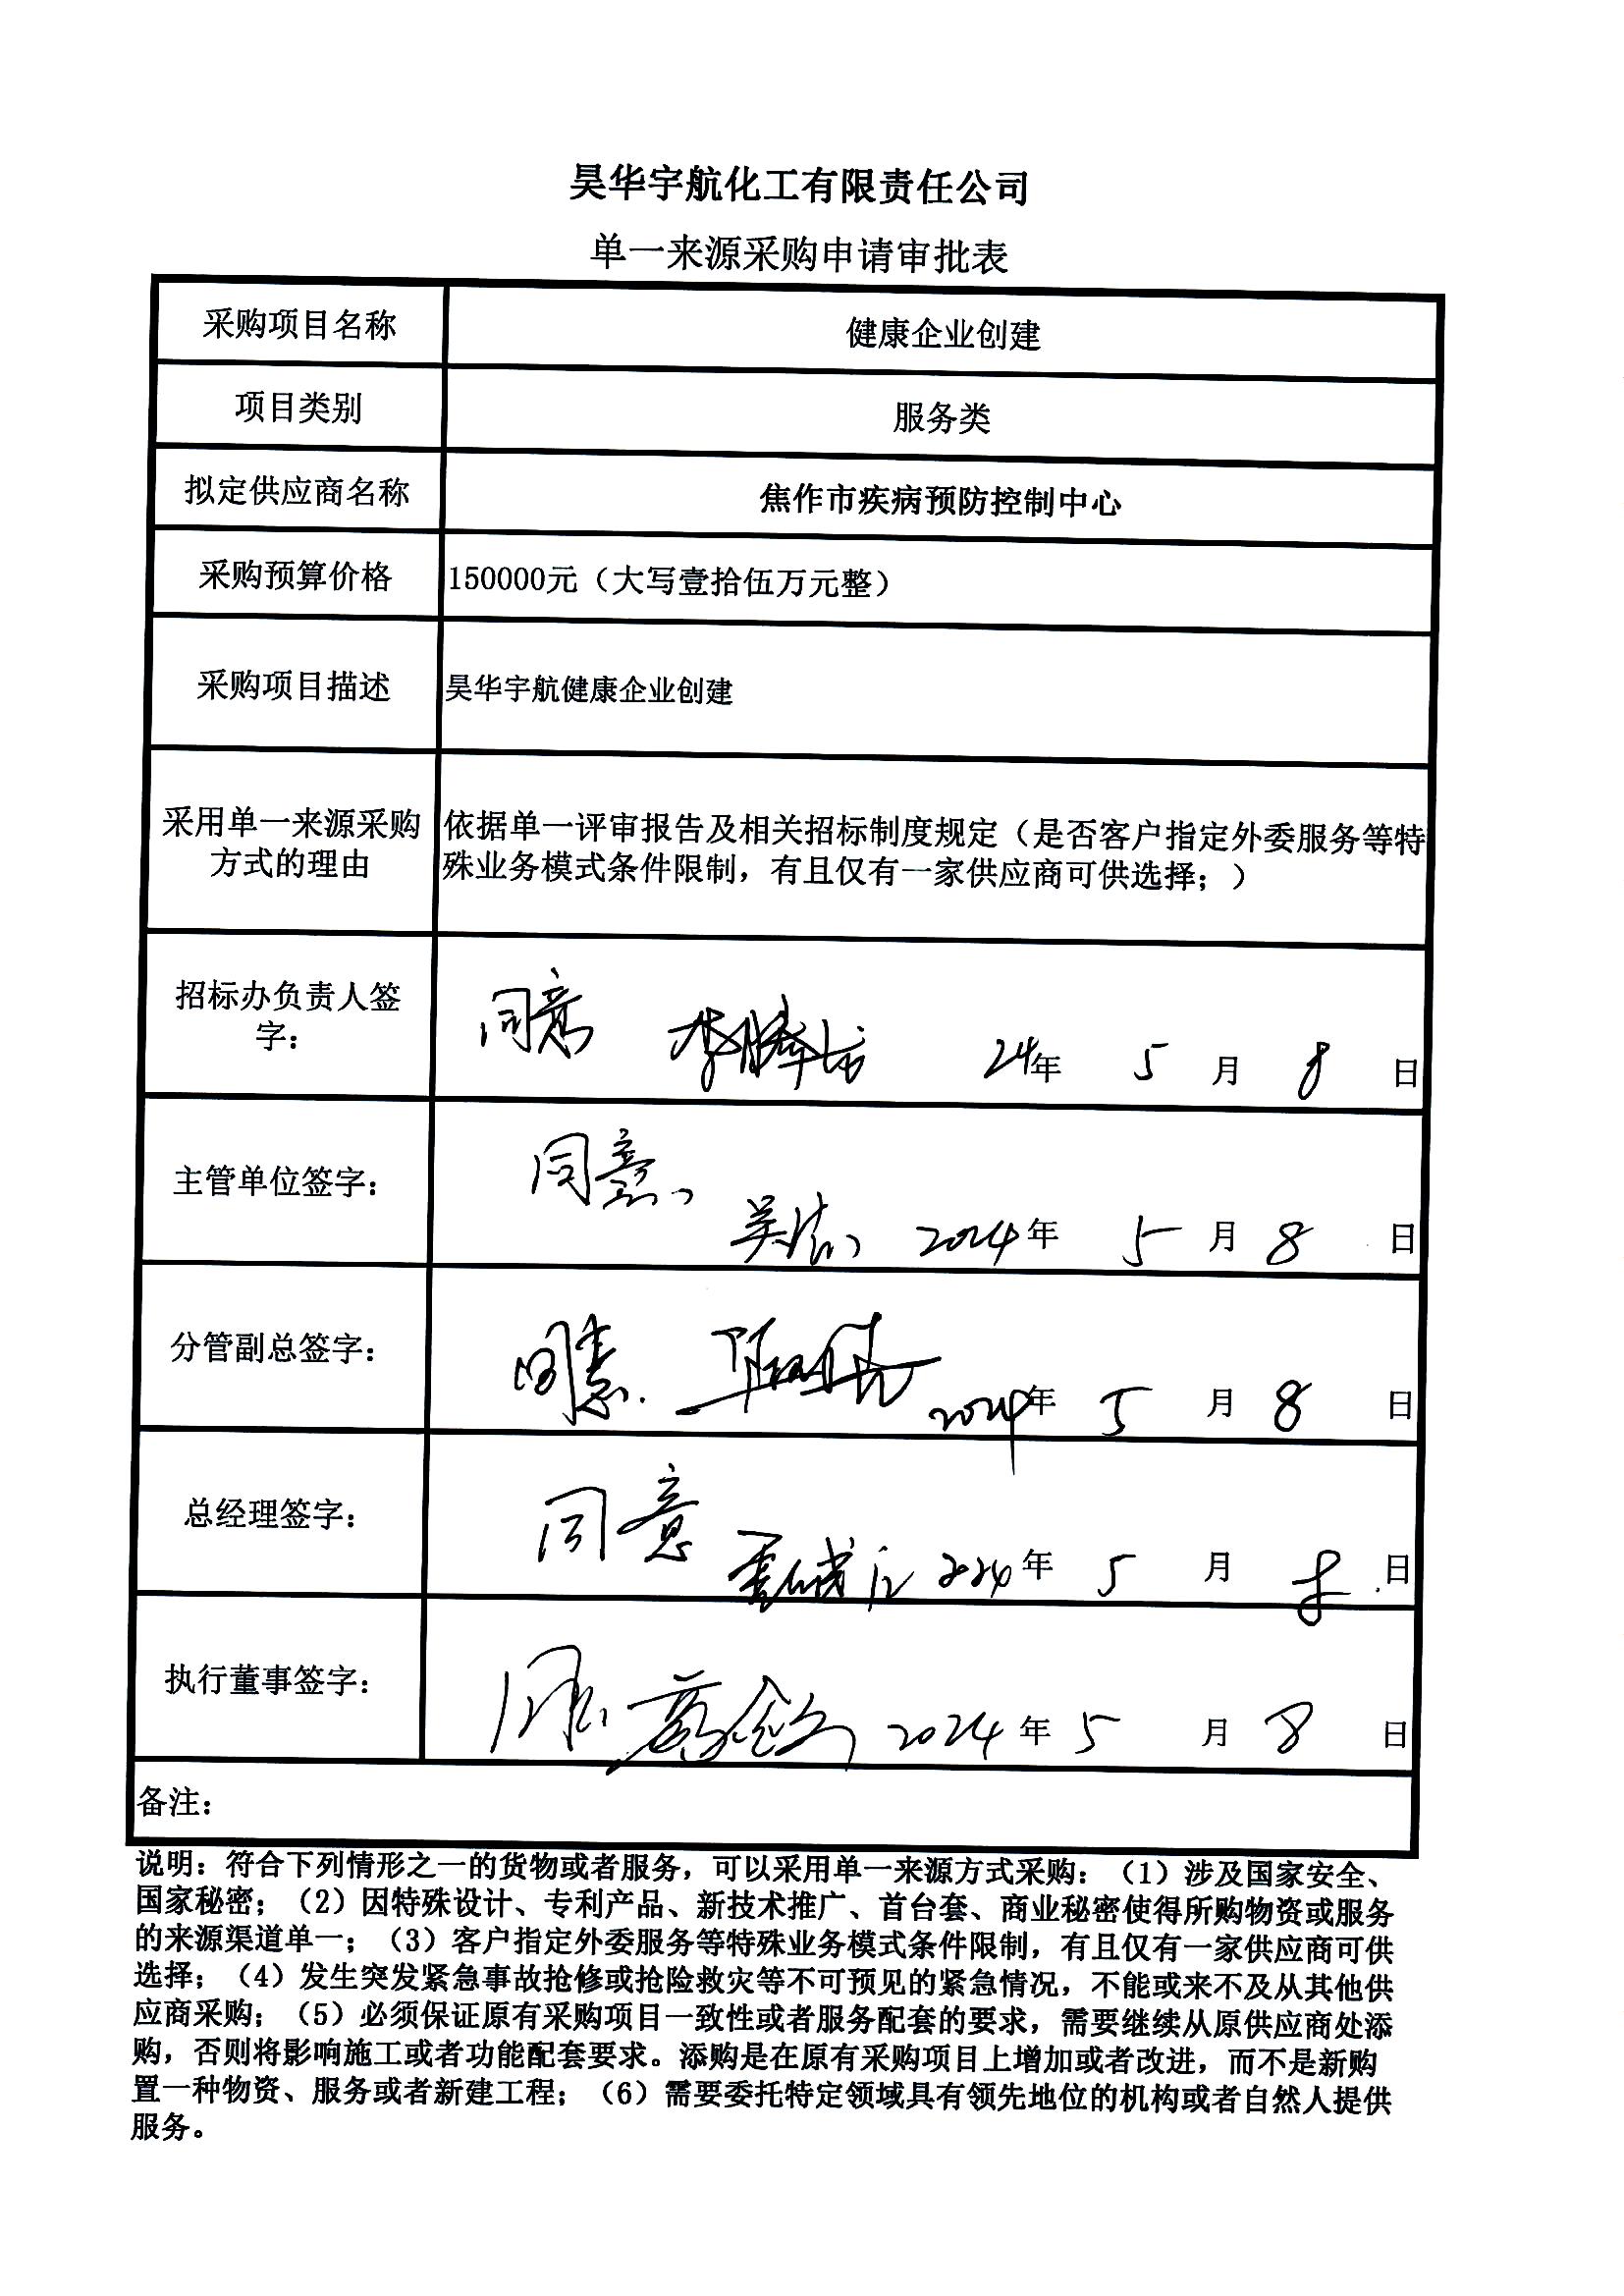 昊华宇航化工有限责任公司
单一来源采购申请审批表
采购项目名称
健康企业创建
项目类别
服务类
拟定供应商名称
焦作市疾病预防控制中心
采购预算价格
150000元（大写壹拾伍万元整）
采购项目描述
昊华宇航健康企业创建
采用单一来源采购
方式的理由
依据单一评审报告及相关招标制度规定（是否客户指定外委服务等特
殊业务模式条件限制，有且仅有一家供应商可供选择；）
招标办负责人签
字：
同意 24年 5 月 8 日
主管单位签字：
同意
2024年 5 月 8 日
分管副总签字：
同意 2024年 5 月 8 日
总经理签字：
同意
2024年 5 月 日
执行董事签字：
2024年 5 月 8 日
备注：
说明：符合下列情形之一的货物或者服务，可以采用单一来源方式采购：（1）涉及国家安全、
国家秘密；（2）因特殊设计、专利产品、新技术推广、首台套、商业秘密使得所购物资或服务
的来源渠道单一；（3）客户指定外委服务等特殊业务模式条件限制，有且仅有一家供应商可供
选择；（4）发生突发紧急事故抢修或抢险救灾等不可预见的紧急情况，不能或来不及从其他供
应商采购；（5）必须保证原有采购项目一致性或者服务配套的要求，需要继续从原供应商处添
购，否则将影响施工或者功能配套要求。添购是在原有采购项目上增加或者改进，而不是新购
置一种物资、服务或者新建工程；（6）需要委托特定领域具有领先地位的机构或者自然人提供
服务。